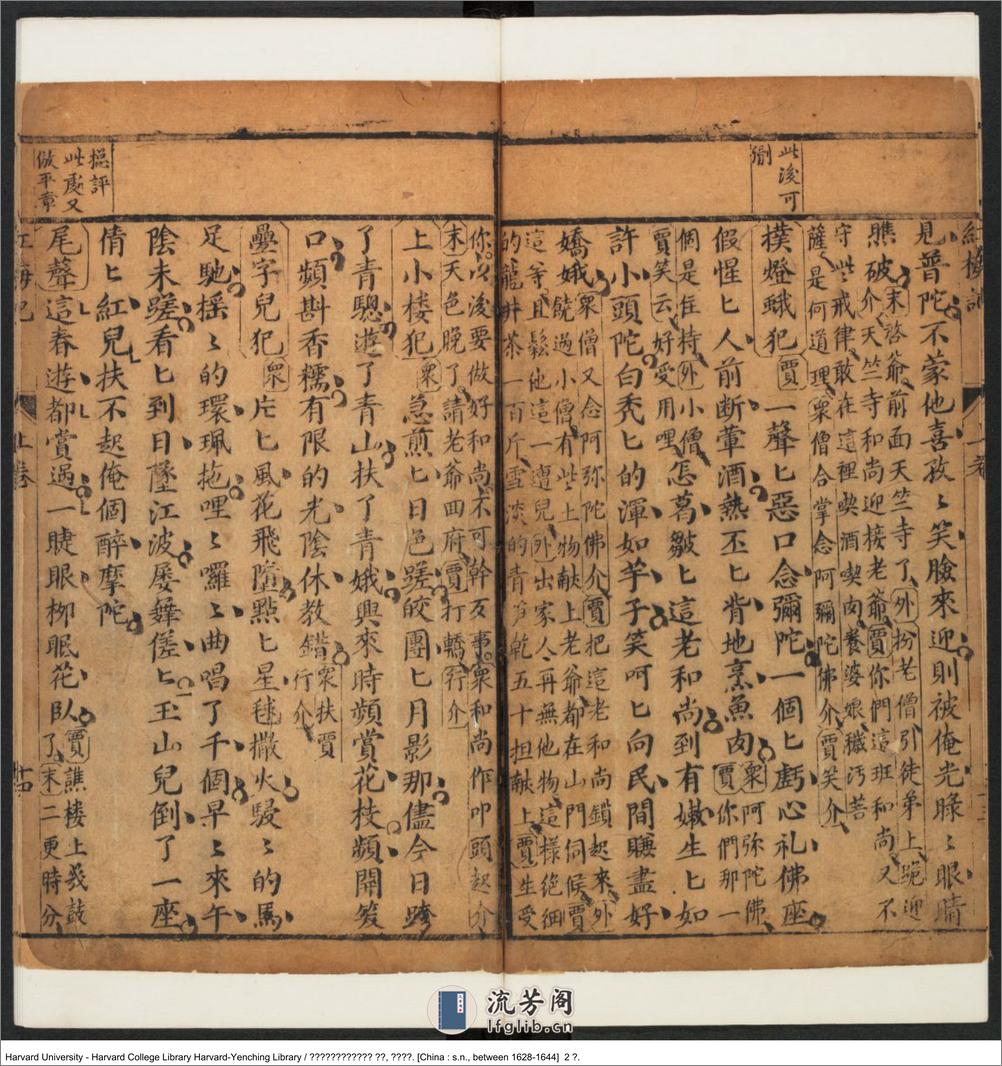 此後可
刪
見普陀不蒙他喜孜〻笑臉來迎則被俺光睩〻眼睛
瞧破介末啓爺前面天竺寺了外扮老僧引徒弟上跪迎
介天竺寺和尚迎接老爺賈你們這班和尚又不
守些戒律敢在這裡喫酒喫肉養婆娘穢污菩
薩是何道理衆僧合掌念阿彌陀佛介賈笑介
撲燈蛾犯賈一聲匕惡口念彌陀一個匕虧心礼佛座
假惺匕人前断葷酒熱丕匕背地烹魚肉衆阿弥陀佛
賈你們那一
個是住持外小僧怎葛皺匕這老和尚到有嫩生匕如
賈笑云好受用哩
許小頭陀白秃匕的渾如芋子笑呵匕向民間賺盡好
嬌娥衆僧又念阿弥陀佛介賈把這老和尚鎖起來外
饒過小僧有些土物献上老爺都在山門伺候賈
這等且鬆他這一遭兒外出家人再無他物這樣絕細
的龍井茶一百斤雪淡的青笋乾五十担献上賈生受
你以後要做好和尚不可幹歹事衆和尚作叩頭起介
末天色晚了請老爺回府賈打轎行介
上小楼犯衆急煎匕日色蹉皎團匕月影那儘今日跨
了青驄遊了青山扶了青娥興來時頻賞花枝頻開笑
口頻斟香糯有限的光陰休教錯衆扶賈
行介
疊字兒犯衆片匕風花飛墮點匕星毬撒火駸〻的馬
足馳摇〻的環珮拖哩〻囉〻曲唱了千個早〻來午
陰未蹉看匕到日墜江波屡舞傞匕玉山兒倒了一座
倩匕紅兒扶不起俺個醉摩陀
尾聲這春遊都賞過一睫眼栁眠花臥賈譙楼上幾鼓
了末二更時分
総評
此處又
倣平章
上卷
十四